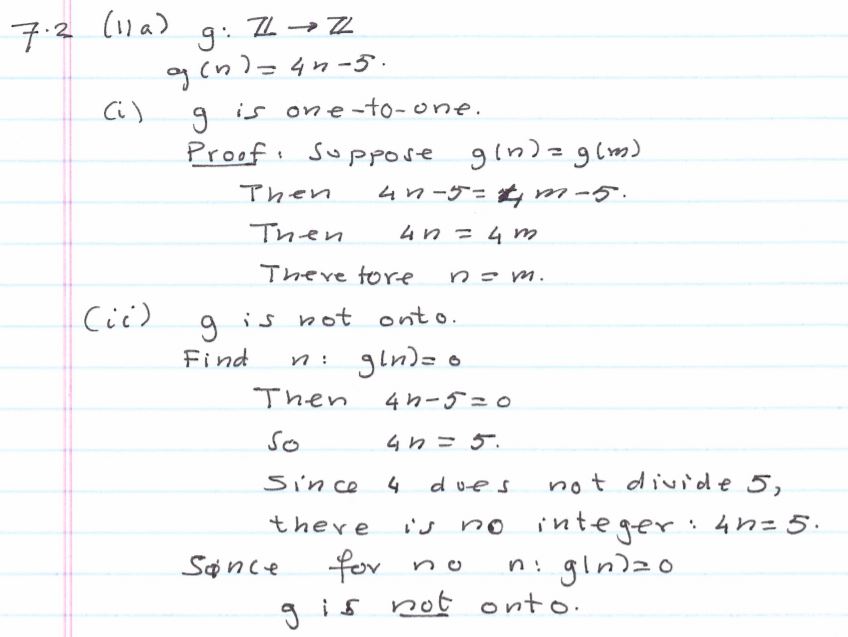 7.2 (11a) g: ℤ → ℤ
g(n) = 4n-5.
(i) g is one-to-one.
Proof: Suppose g(n) = g(m)
Then 4n-5 = 4m-5.
Then 4n = 4m
Therefore n = m.
(ii) g is not onto.
Find n: g(n) = 0
Then 4n-5 = 0
So 4n = 5.
Since 4 does not divide 5,
there is no integer: 4n = 5.
Since for no n: g(n) = 0
g is not onto.